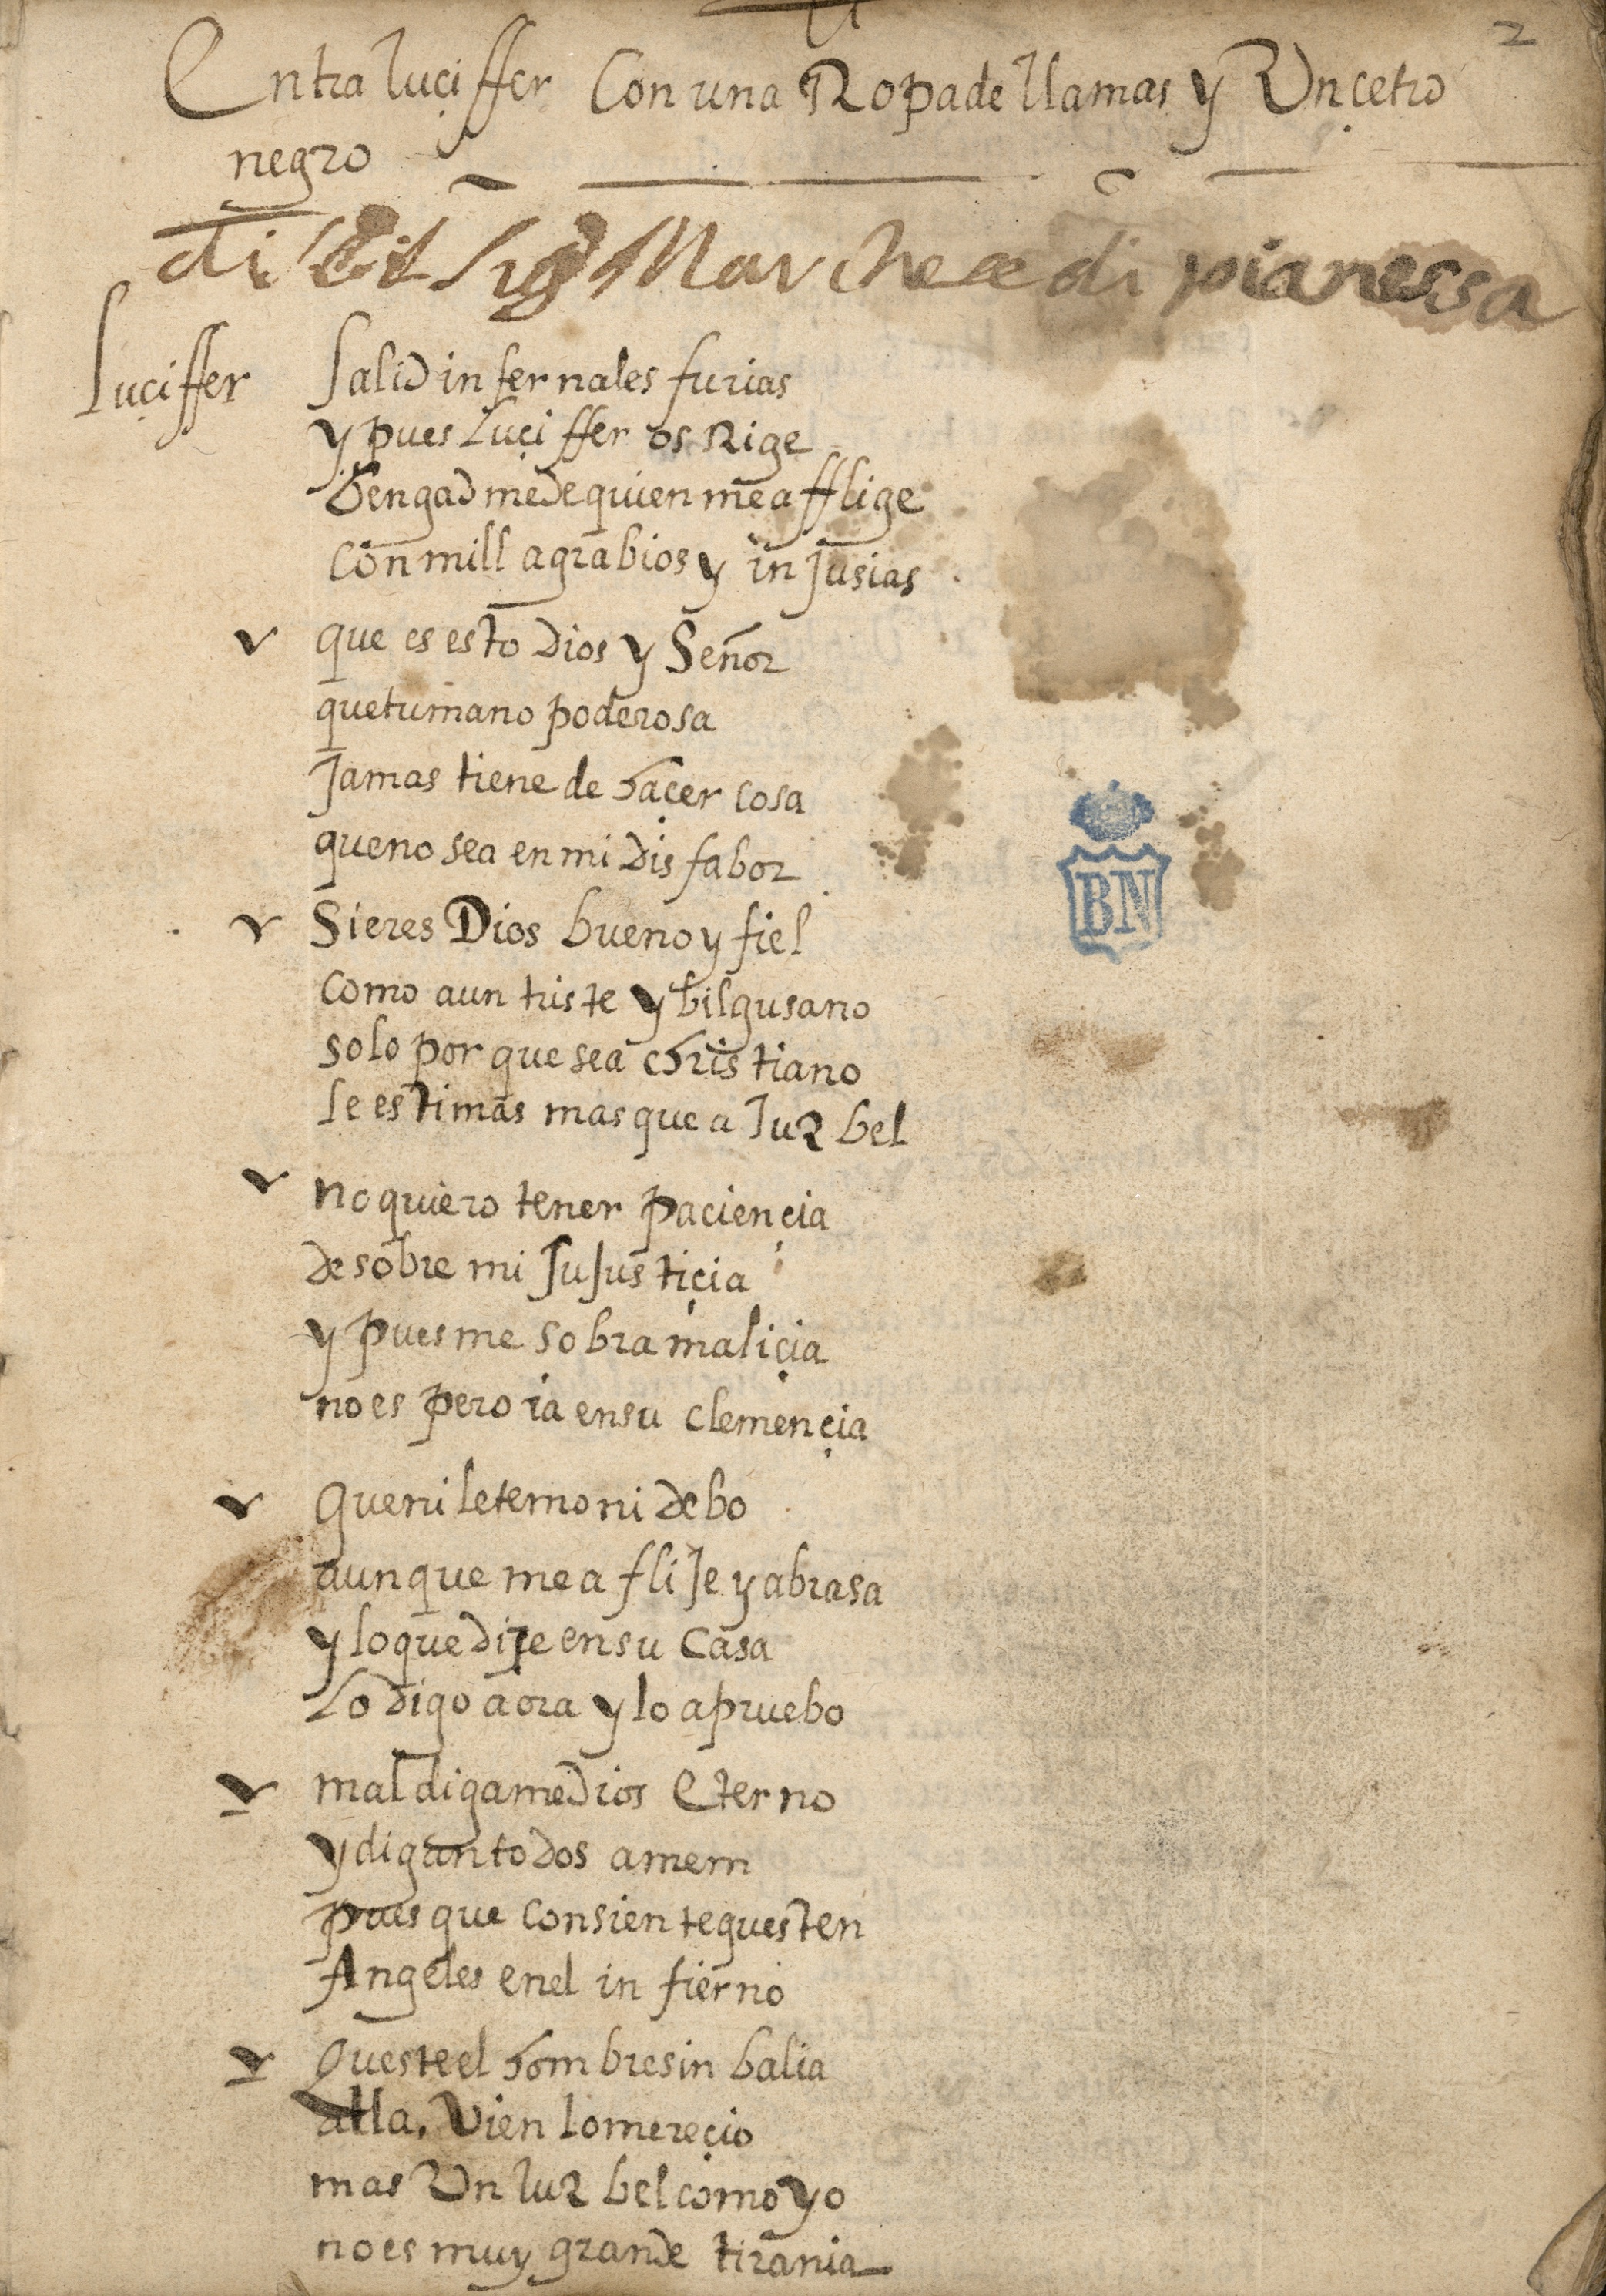 2
Entra luçiffer Con una Ropa de llamas y Un çetro
negro
di Sig Marchese di pianessa
Luçiffer Salid infernales furias
y pues Luçiffer os Rige
bengad me de quien me afflige
con mill agrabios y injusias
que es esto Dios y Señor
que tu mano poderosa
Jamas tiene de haçer cosa
que no sea en mi disfabor
Si eres Dios bueno y fiel
como a un triste y bil gusano
solo por que sea christiano
le estimas mas que a luzbel
no quiero tener paciençia
de sobre mi su Justiçia
y pues me sobra maliçia
no es pero ia en su clemençia
Que ni le temo ni debo
aunque me aflije y abrasa
y lo que dije en su Casa
Lo digo aora y lo apruebo
maldigame dios Eterno
y digan todos amem
pues que consiente questen
Angeles en el infierno
Queste el hombre sin balia
alla, Vien lo mereçio
mas Un luzbel como yo
no es muy grande tirania
BN